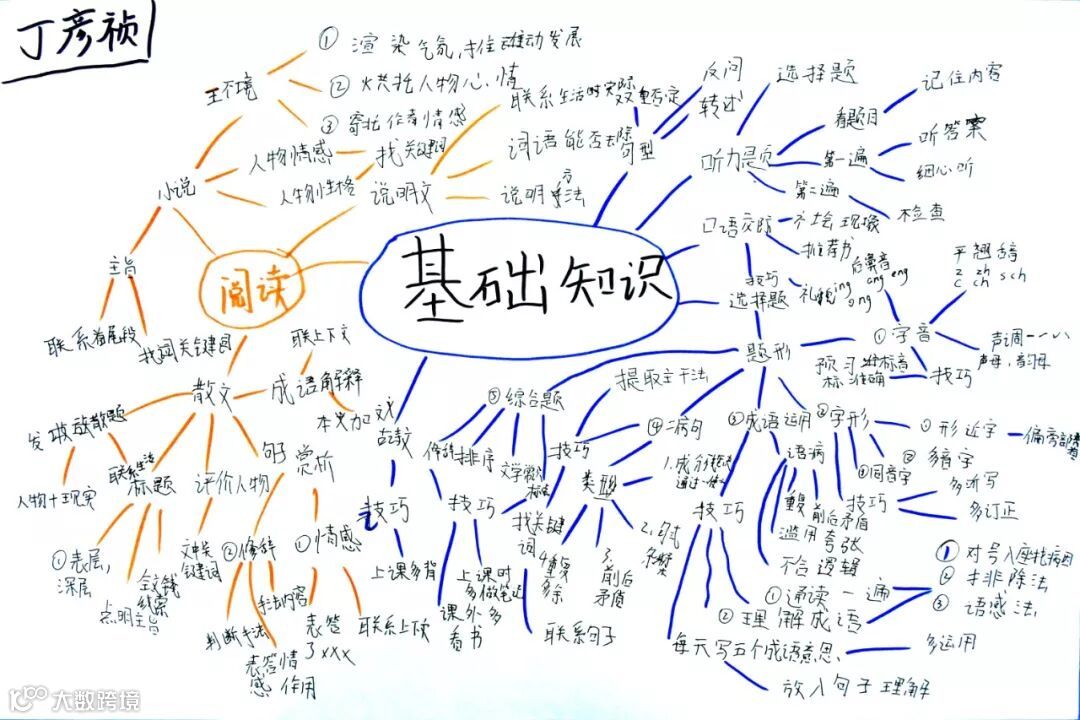 丁彦祯
基础知识
阅读
小说
环境
① 渲染气氛,推动发展
② 烘托人物心情
③ 寄托作者情感
人物情感
人物性格
找关键词
主旨
联系首尾段
说明文
词语能否去除
说明方法
散文
成语解释
联上下文
本义加文
发散题
人物+现实
联系生活
标题
①表层,
深层
点明主旨
全文线
线索
评价人物
文中关
键词
句子赏析
②修辞
判断手法
手法内容
表答情
感 作用
①情感
表答
了xxx
联系上下文
句型
双重否定
反问
转述
听力题
选择题
看题目
记住内容
第一遍
听答案
细心听
第二遍
检查
口语交际
推荐书
技巧
礼貌
选择题
题形
①字音
平翘舌
z zh
c ch s sh
后鼻音
ing ang eng
ong
声调一
声母,韵母
技巧
预习
标准确
②字形
①形近字
偏旁部首
②多音字
③同音字
技巧
多听写
多订正
③成语运用
语病
重复 前后矛盾
滥用夸张
不合逻辑
技巧
①通读一遍
②理解成语
① 对号入座
② 排除法
③ 语感法
每天写五个成语意思
多运用
放入句子理解
④病句
提取主干法
技巧
类型
3.前后
矛盾
4.重复
多余
找关键
词
联系句子
⑤综合题
修辞
排序
文学
技巧
上课时
多做笔记
课外多
看书
技巧
上课多背